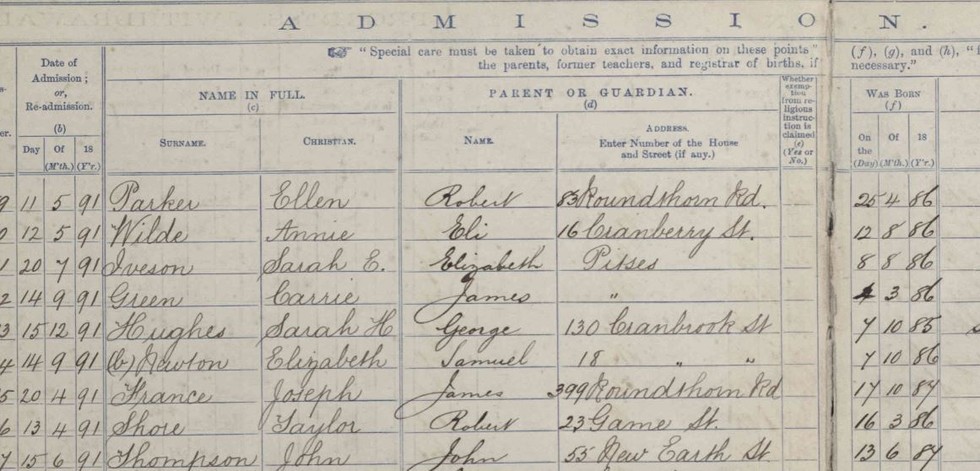 ADMISSION.
☞ "Special care must be taken to obtain exact information on these points" (f), (g), and (h), "
the parents, former teachers, and registrar of births, if necessary."
Date of Admission; or, Re-admission. (b) Day Of (M'th.) 18 (Y'r.)
NAME IN FULL. (c) SURNAME. CHRISTIAN.
PARENT OR GUARDIAN. (d) NAME. ADDRESS. Enter Number of the House and Street (if any.)
Whether exemption from religious instruction is claimed (e) (Yes or No.)
WAS BORN (f) On the (Day) Of (M'th.) 18 (Y'r.)
9 11 5 91 Parker Ellen Robert 83 Roundthorn Rd. 25 4 86
0 12 5 91 Wilde Annie Eli 16 Cranberry St. 12 8 86
1 20 7 91 Iveson Sarah E. Elizabeth Pitses 8 8 86
2 14 9 91 Green Carrie James " 3 86
3 15 12 91 Hughes Sarah H George 130 Cranbrook St 7 10 85
4 14 9 91 (b) Newton Elizabeth Samuel 18 " " 7 10 86
5 20 4 91 France Joseph James 399 Roundthorn Rd 17 10 84
6 13 4 91 Shore Taylor Robert 23 Game St. 16 3 86
7 15 6 91 Thompson John John 55 New Earth St 13 6 84